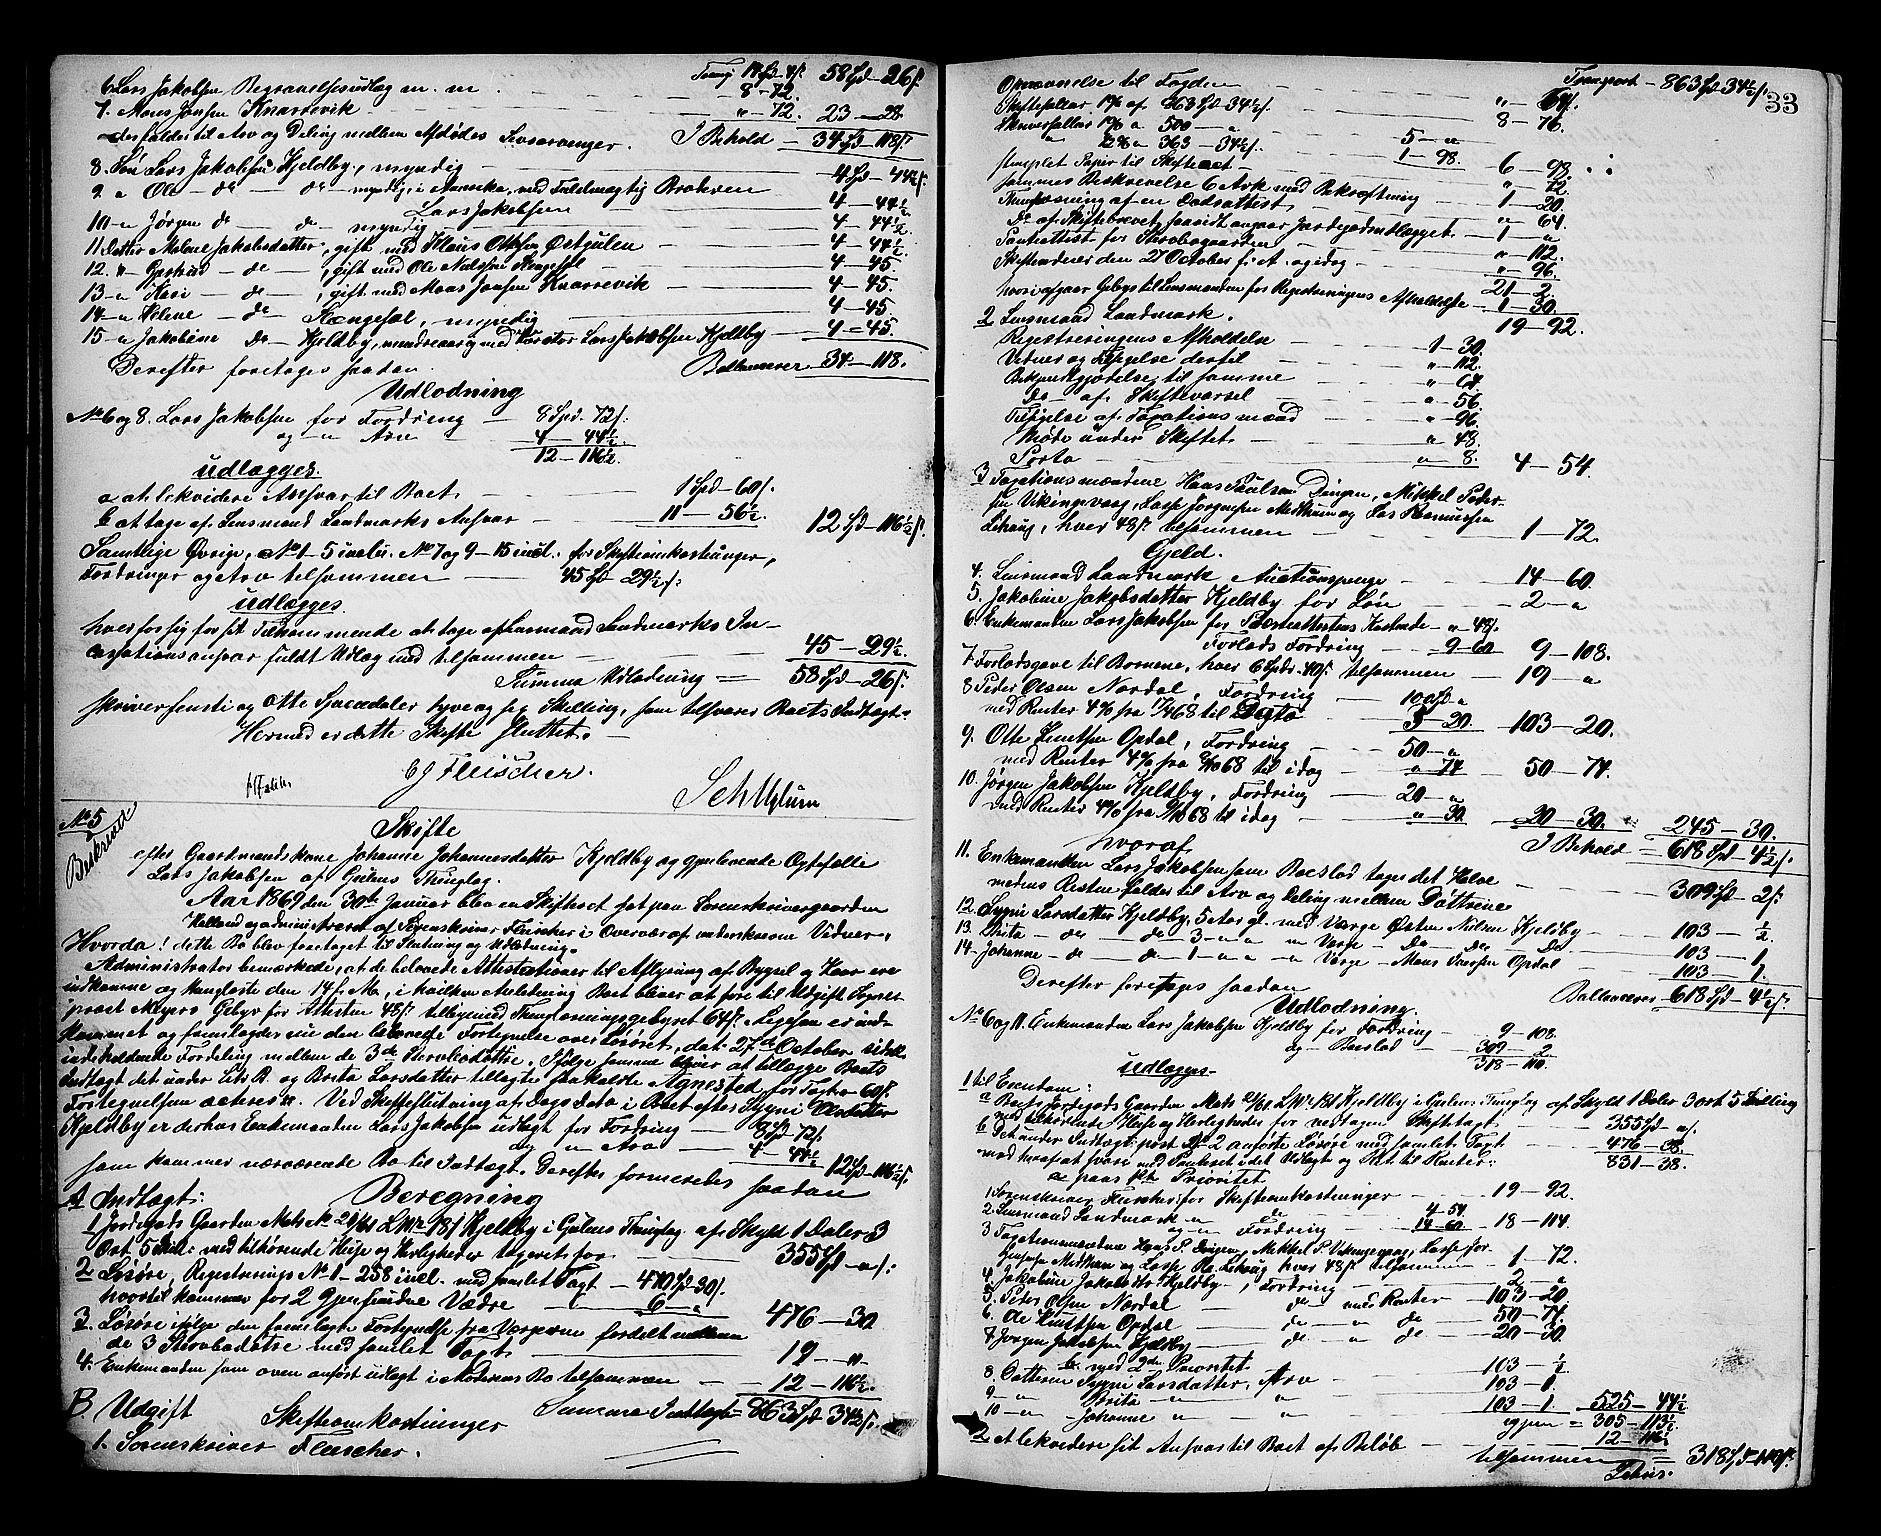 6. Lars Jakobsen Begravelsesudlag m. m. — 8 - 72. 58 Spd - 26 s.
7. Mons Jansen Knarrevik — " - 72. 23 - 28
der falder til Arv og Deling mellem Afdødes Livsarvinger. I Behold — 34 Spd - 118 s.
8. Søn Lars Jakobsen Kjeldby, myndig — 4 Spd - 44½ s.
9. " Ole — de — de — myndig, i Amerika, ved Fuldmægtig Broderen
Lars Jakobsen — 4 - 44½
10. " Jørgen de — de — myndig — 4 - 44½
11. Datter Malene Jakobsdatter, gift med Klaus Ottesen Østgulen — 4 - 44½
12. " Gjertrud — de — , gift med Ole Nielsen Stengesøl — 4 - 45.
13. " Kari — de — , gift med Mons Jansen Knarrevik — 4 - 45.
14. " Helene — de — myndig — 4 - 45
15. " Jakobine de — Kjeldby, mindreaarig med Kurator Lars Jakobsen Kjeldby — 4 - 45.
Derefter foretages saadan Ballancerer 34 - 118.
Udlodning
No 6 og 8. Lars Jakobsen for Fordring — 8 Spd. 72 s.
og " Arv — 4 - 44½
12 - 116½.
udlægges.
a at likvidere i Ansvar til Boet — 1 Spd - 60 s.
b at tage af Lensmand Landmarks Ansvar — 11 - 56½. 12 Spd - 116½ s.
Samtlige Øvrige, No 1 - 5 incl. No 7 og 9 - 15 incl. for Skifteomkostninger,
Fordringer og Arv tilsammen — 45 Spd 29½ s.
udlægges.
hver for sig for sit Tilkommende at tage af Lensmand Landmarks In-
cassationsansvar fuldt Udlæg med tilsammen — 45 - 29½.
Summa Udlodning = 58 Spd - 26 s.
skriver femti og Otte Speciedaler tyve og sex Skilling, som tilsvarer Boets Indtægt.
Hermed er dette Skifte sluttet.
C J Fleischer.
No 5
Beskrevet
Skifte
efter Gaardmandskone Johanne Johannesdatter Kjeldby og gjenlevende Ægtefælle
Lars Jakobsen af Gulens Thinglag.
Aar 1869 den 30te Januar blev en Skifteret sat paa Sorenskrivergaarden
Helland og administreret af Sorenskriver Fleischer i Overvær af underskrevne Vidner.
Hvorda! dette Bo blev foretaget til Slutning og Udlodning.
Administrator bemærkede, at de belovede Attestationer til Aflysning af Bygsel og Kaar ere
indkomne og thinglæste den 14 f. M., i hvilken Anledning Boet bliver at føre til Udgift Sogne-
præst Meyers Gebyr for Attesten 48 s. tilligemed Thinglæsningsgebyret 64 s. Ligesom er ind-
kommet og fremlagdes nu den belovede Fortegnelse over Løsøret, dat. 27de October sidstl.
indeholdende Fordeling mellem de 3de Sterbodøttre. Ifølge samme bliver at tillægge Boets
Indtægt det under Litr B. og Brita Larsdatter tillagte saakaldte Agnested for Taxt 60 s.
Fortegnelsen acteres. Ved Skifteslutning af Dags Dato i Boet efter Sygni Olsdatter
Kjeldby er derhos Enkemanden Lars Jakobsen udlagt for Fordring — 8 Spd 72 s.
og " Arv — 4 - 44½ 12 Spd - 116½ s.
som kommer nærværende Bo til Indtægt. Derefter formeredes saadan
Beregning
A Indtægt:
1. Jordegods Gaarden Matr No 21/61 L No 181 Kjeldby i Gulens Thinglag af Skyld 1 Daler 3
Ort 5 Skill. med tilhørende Huse og Herligheder udgjort for — 355 Spd - " s.
2. Løsøre, Registrerings No 1 - 258 incl. med samlet Taxt — 470 Spd 30 s.
hvortil kommer for 2 gjenfundne Vædre — 6 - " 476 - 30
3. Løsøre ifølge den fremlagte Fortegnelse fra Værgerne fordelt mellem
de 3 Sterbodøtre med samlet Taxt — 19 - "
4. Enkemanden som oven anført udlagt i Moderens Bo tilsammen — 12 - 116½.
Summa Indtægt = 863 Spd 34½ s.
B. Udgift
Skifteomkostninger
1. Sorenskriver Fleischer.
33
Transport — 863 Spd 34½ s.
Oprævnelse til Fogden — " - 64.
Skiftesallar 1% af 863 Spd - 34½ s. — 8 - 76.
Skriversallar 1% a 500 - " — 5 - "
" ½% a 363 - 34½ s. — 1 - 98. 6 - 98.
stemplet Papir til Skifteact — " - 72.
sammes Beskrivelse 6 Ark med Bekræftning — 1 - 20.
Thinglæsning af en Dødsattest — " - 64.
do af Skiftebrevet, forsaavidt angaar Jordegodsudlægget — 1 - "
Pantattest for Sterbogaarden — " - 112.
Skiftenderes den 21 October f. A. og idag — " - 96.
21 - 2.
hvori afgaar Gebyr til Lensmanden for Registreringens Afholdelse — 1 - 30.
19 - 92.
2 Lensmand Landmark.
Registreringens Afholdelse — 1 - 30.
Vidner og Tilsigelse dertil — " - 112.
Bekjendtgjørelse til samme — " - 64.
do af Skiftevarsel — " - 56.
Tilsigelse af Taxationsmænd — " - 96.
Møde under Skiftet — " - 48.
Porto — " - 8. 4 - 54.
3 Taxationsmændene Hans Poulsen Dingen, Mikkel Peder-
sen Vikingevaag, Lasse Jørgensen Midthun og Lars Rasmussen
hver 48 s. tilsammen — 1 - 72.
Gjeld.
4. Lensmand Landmark, Auctionspenge — 14 - 60.
5. Jakobine Jakobsdatter Kjeldby for Løn — 2 - "
6. Enkemanden Lars Jakobsen for Præsteattestens Kostende — " - 48 s.
Forlods Fordring — 9 - 60 9 - 108.
7. Forlodsgave til Børnene, hver 6 Spdr. 40 s. tilsammen — 19 - "
8 Peder Olsen Nordal, Fordring — 100 Spd "
med Renter 4% fra 11/4 68 til Dagto — 3 - 20. 103 - 20.
9. Otte Knutsen Opdal, Fordring — 50 - "
med Renter 4% fra 68 til idag — " - 74 50 - 74.
10. Jørgen Jakobsen Kjeldby, Fordring — 20 - "
med Renter 4% fra 68 til idag — " 30. 20 - 30. 245 - 30.
hvoraf I Behold = 618 Spd - 4½ s.
11. Enkemanden Lars Jakobsen som Boeslod tager det Halve — 309 Spd - 2 s.
medens Resten falder til Arv og Deling mellem Døttrene
12. Sygni Larsdatter Kjeldby, 5 Aar gl. med Værge Østen Nilsen Kjeldby — 103 - ½.
13. Brita — de — de — 3 " " " Værge — do — do — do — 103 - 1.
14. Johanne — de — de — 1 " " " Værge — Mons Opdal — 103 - 1.
Derefter foretages saadan Ballancerer — 618 Spd - 4½ s.
Udlodning.
No 6 og 11. Enkemanden Lars Jakobsen Kjeldby for Fordring — 9 - 108.
og — Boeslod — 309 - 2
318 - 110.
udlægges
1 til Eiendom:
a Boets Jordegods Gaarden Matr 21/61. L No 181 Kjeldby i Gulens Thinglag af Skyld 1 Daler 3 ort 5 Skilling
med tilhørende Huse og Herligheder for vedtagen Skiftetaxt — 355 Spd - " s.
b Det under Indtægtspost No 2 anførte Løsøre med samlet Taxt — 476 - 38.
mod hvoraf at svare med Panteret i det Udlagte og Hk. til Renter: 831 - 38.
a paa 1ste Prioritet
1 Sorenskriver Fleischer for Skifteomkostninger — 19 - 92.
2 Lensmand Landmark " de — 4 - 54
og " Fordring — 14 - 60. 18 - 114.
3 Taxationsmændene Hans P. Dingen, Mikkel P. Vikingevaag, Lasse Jør-
gensen Midthun og hver 48 s. tilsammen — 1 - 72.
4. Jakobine Jakobsdtr Kjeldby, Fordring — 2 - "
5. Peder Olsen Nordal — de — med Renter — 103 - 20.
6. Ole Knutsen Opdal — de — " de — 50 - 74.
7. Jørgen Jakobsen Kjeldby — de — " de — 20 - 30.
b. med 2den Prioritet
8. Datteren Sygni Larsdatter, Arv — 103 - ½.
9 " Brita " " — 103 - 1.
10 " Johanne " " — 103 - 1 525 - 44½
igjen = 305 - 113½
2 At likvidere sit Ansvar til Boet af Beløb — 12 - 116½
tilsammen 318 Spd - 110 s.